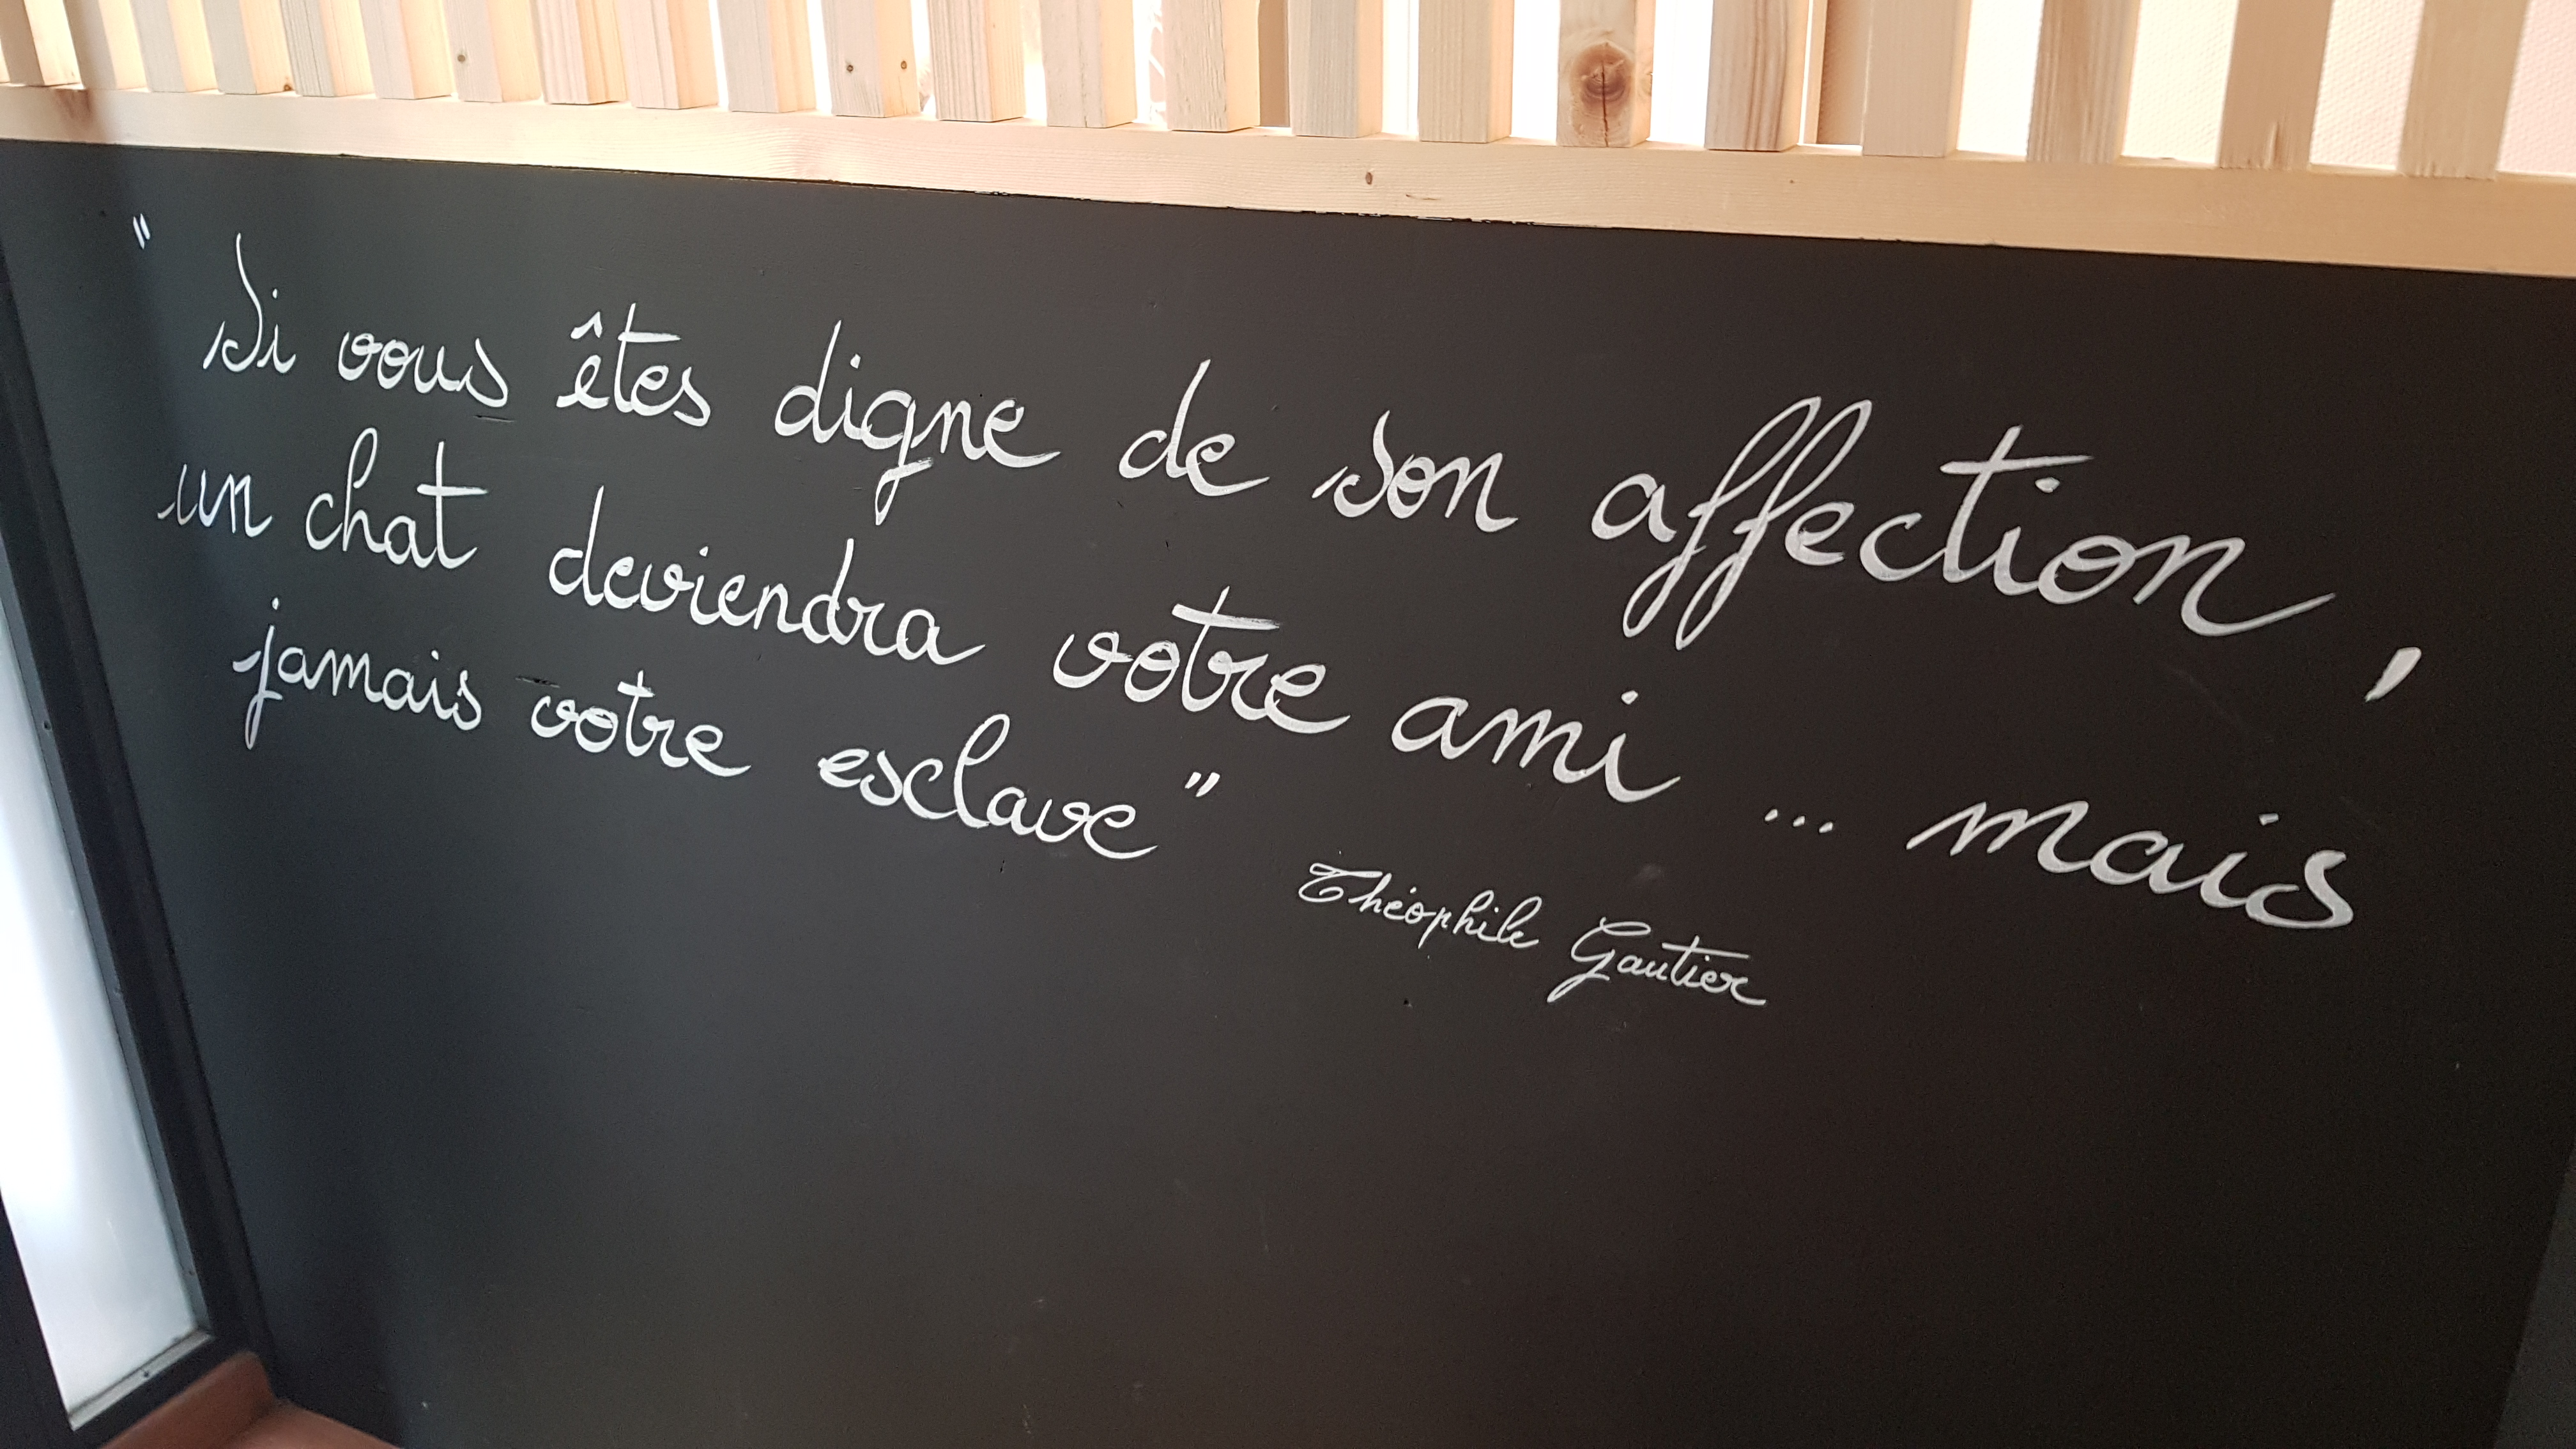 " Si vous êtes digne de son affection,
un chat deviendra votre ami ... mais
jamais votre esclave"
Théophile Gautier